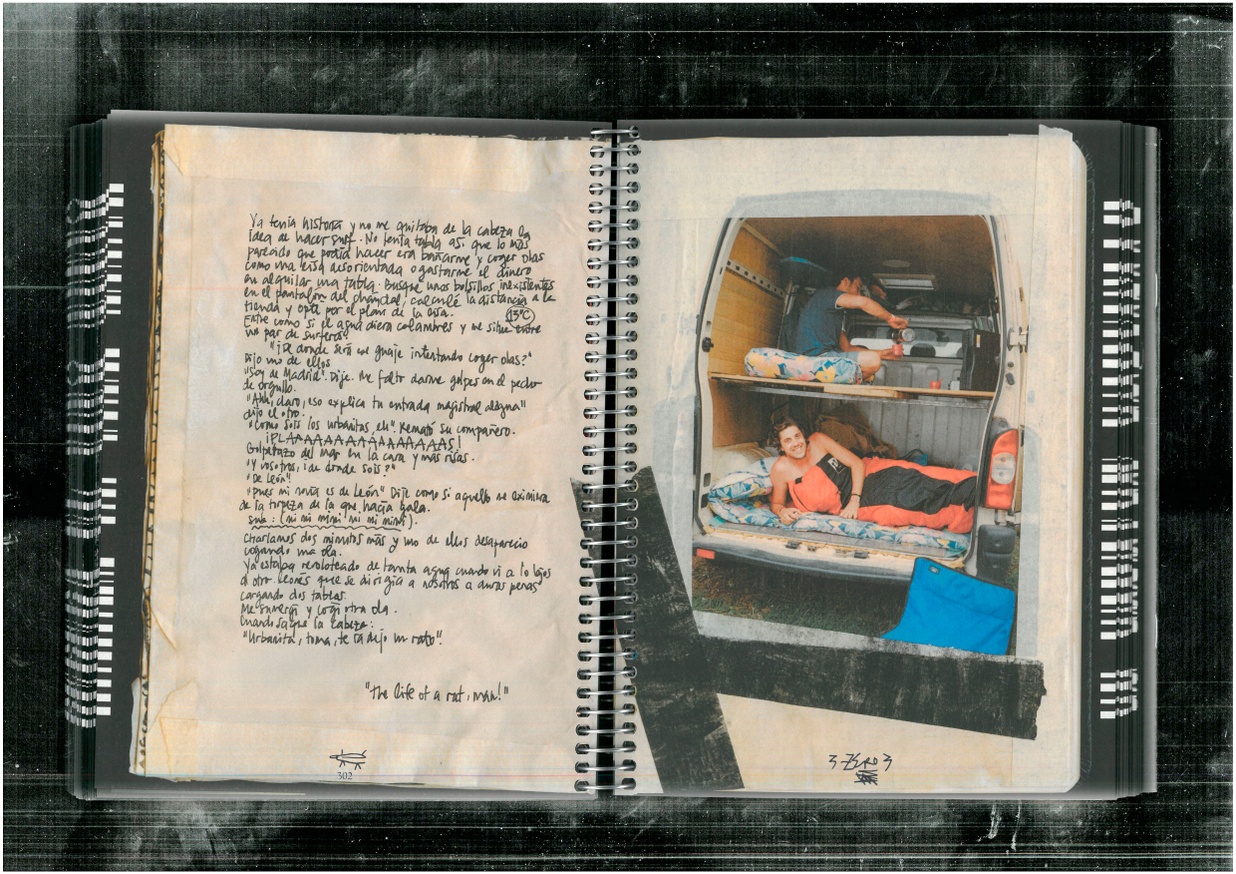 Ya tenía historia y no me quitaba de la cabeza la
idea de hacer surf. No tenía tabla así que lo más
parecido que podía hacer era bañarme y coger olas
como una desorientada o gastarme el dinero
en alquilar una tabla. Busqué unos bolsillos inexistentes
en el pantalón del chándal, calculé la distancia a la
tienda y opté por el plan de la
(13ºC)
Entré como si el agua diera calambres y me situé entre
un par de surferos.
"¿De donde será ese guaje intentando coger olas?"
Dijo uno de ellos
"Soy de Madrid". Dije. Me faltó darme golpes en el pecho
de orgullo.
"Ahh, claro, eso explica tu entrada magistral al agua"
dijo el otro.
"Como sois los urbanitas, eh". Remató su compañero.
¡PLAAAAAAAAAAAAAAAS!
Golpetazo del mar en la cara y más risas.
"Y vosotros, ¿de donde sois?"
"De León".
"Pues mi novia es de León" Dije como si aquello me eximiera
de la torpeza de la que hacía gala.
(mi mi mimi mi mi mimi).
Charlamos dos minutos más y uno de ellos desapareció
cogando una ola.
Ya estaba revoloteado de tanta agua cuando vi a lo lejos
a otro leonés que se dirigía a nosotros a duras penas
cargando dos tablas.
Me sumergí y cogí otra ola.
Cuando saqué la cabeza:
"Urbanita, toma, te la dejo un rato".
"the life of a rat, man!"
302
3 ZERO 3